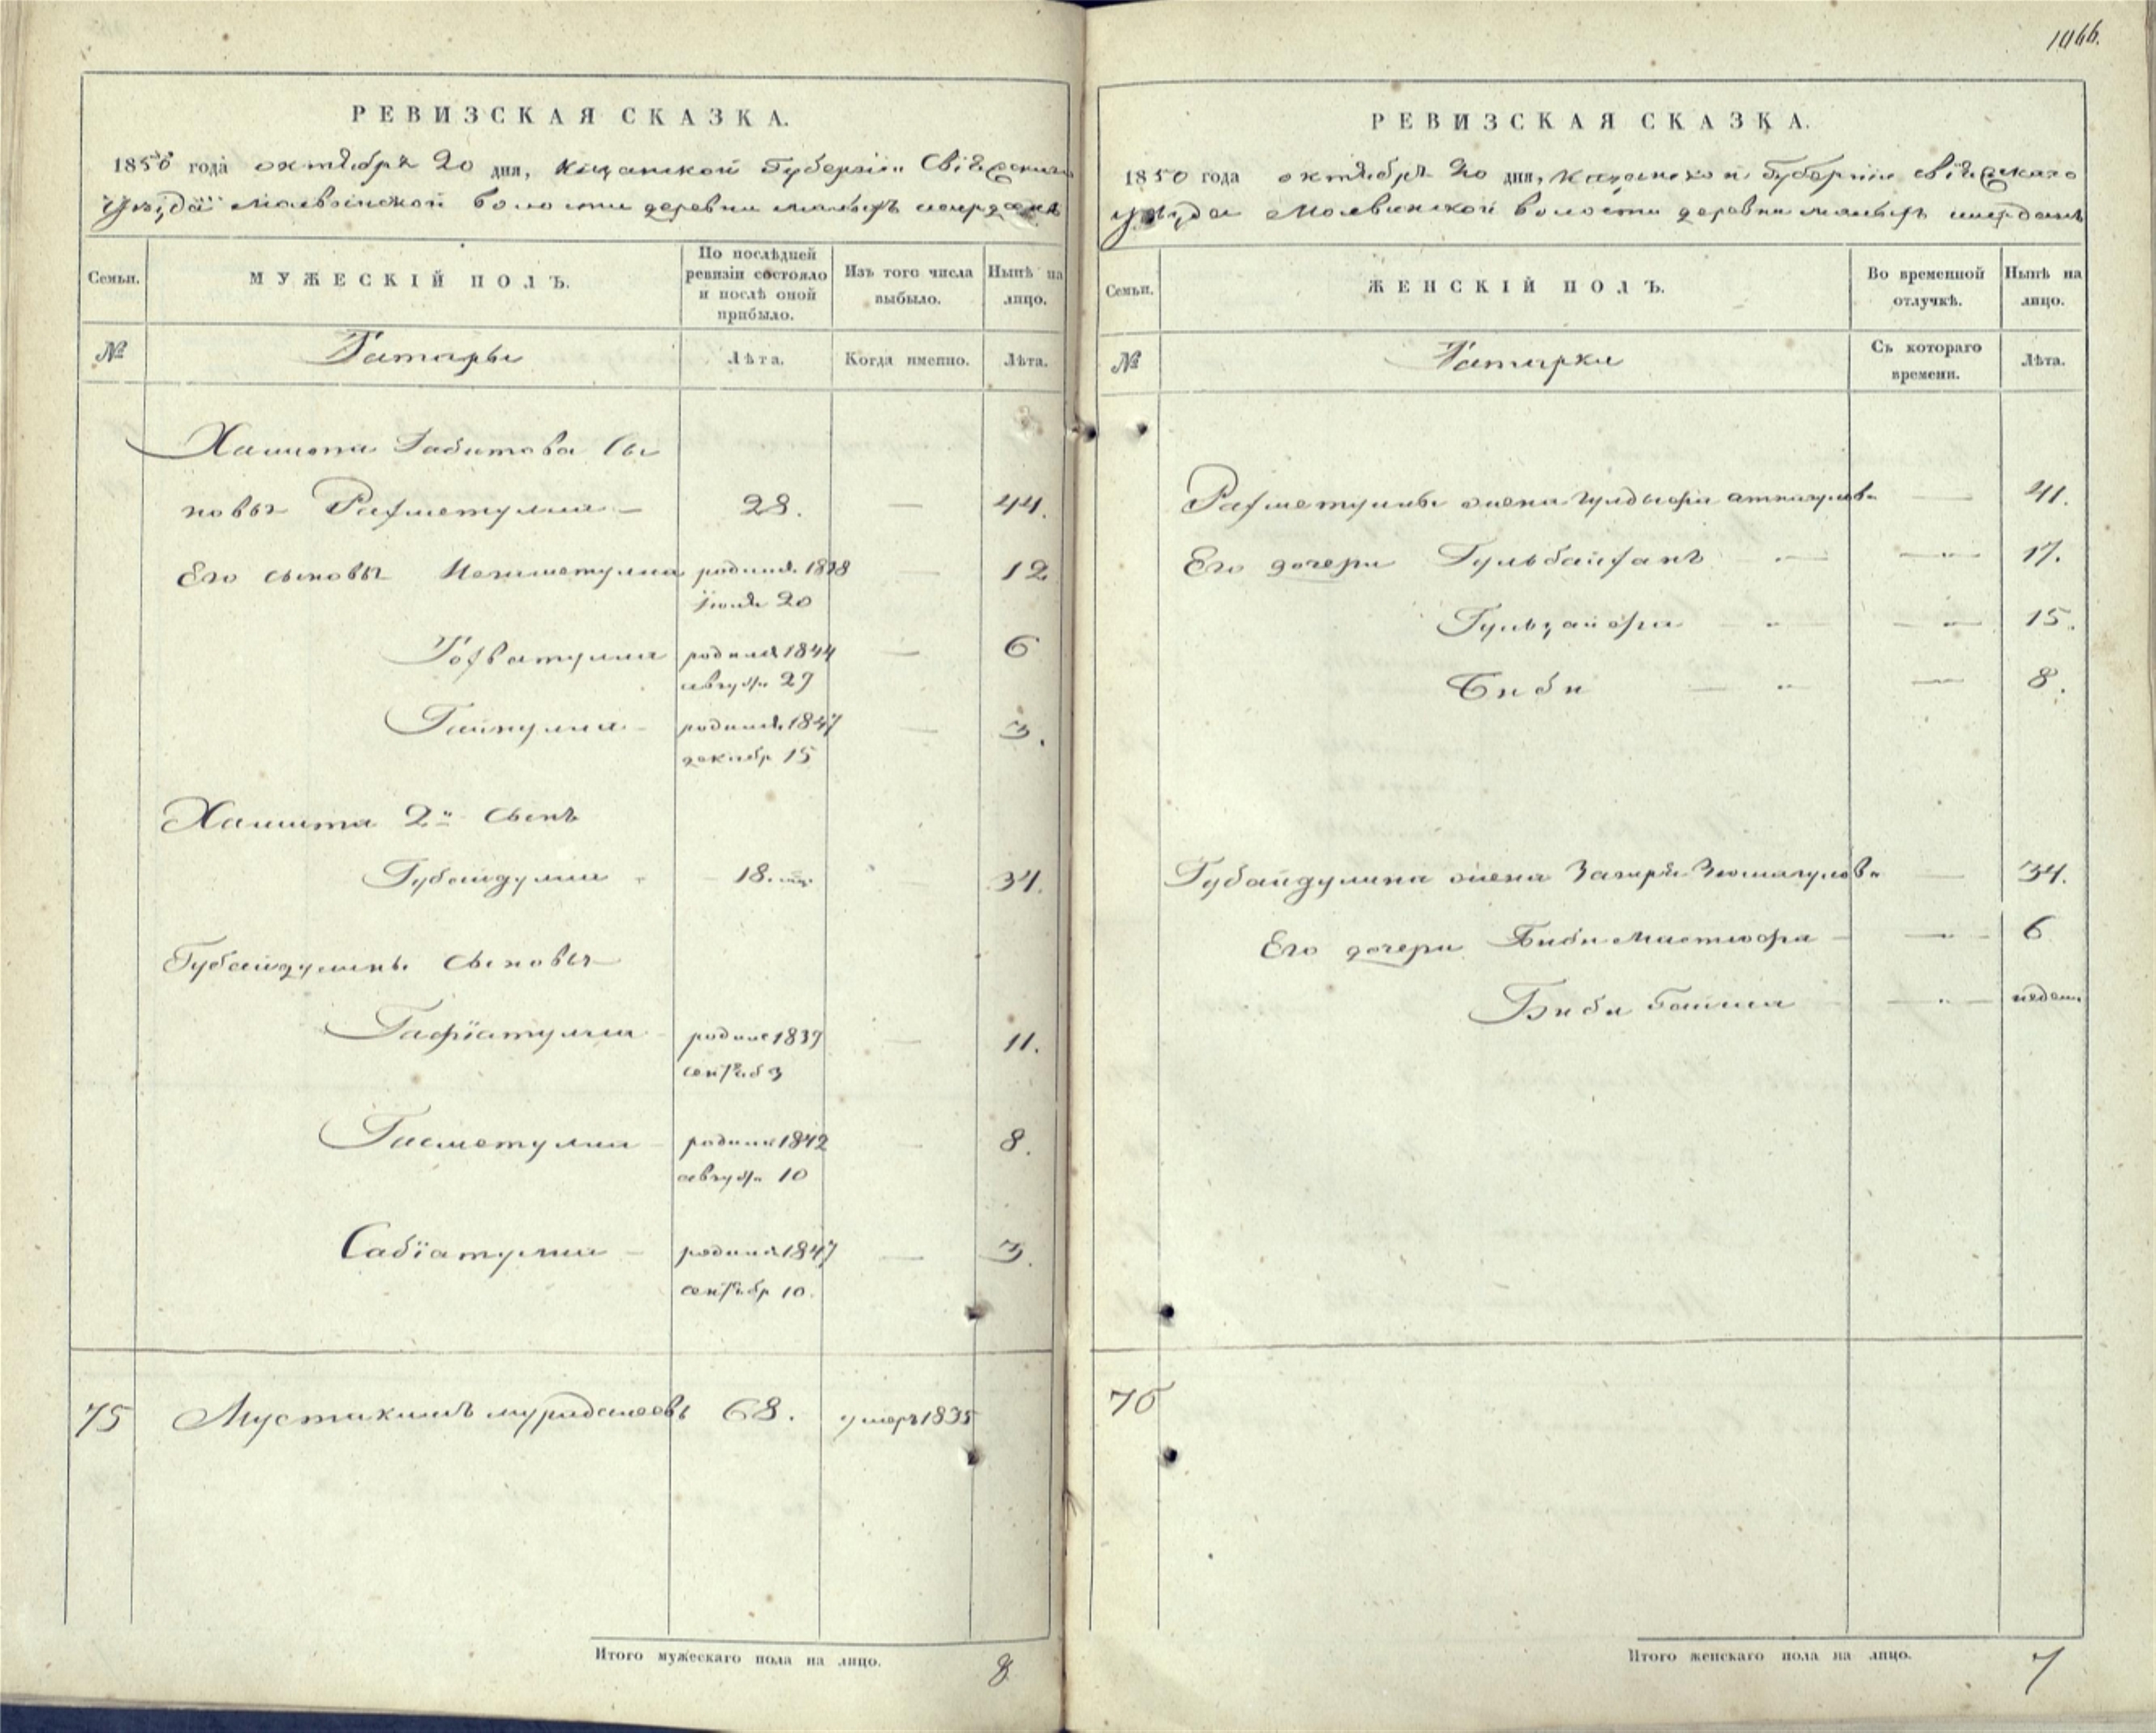 1066.
РЕВИЗСКАЯ СКАЗКА.
1850 года октября 20 дня, Казанской Губерніи Свіяжскаго
уѣзда Молвинской волости деревни малыхъ ширданъ
Семьи. МУЖЕСКІЙ ПОЛЪ. По послѣдней ревизіи состояло и послѣ оной прибыло. Изъ того числа выбыло. Нынѣ на лицо.
№ Татары Лѣта. Когда именно. Лѣта.
Хамита Габитова сы
новья Рахметулла — 28. — 44.
Его сыновья Негметулла родился 1838 — 12
Іюля 20
Тохватулла родился 1844 — 6
августа 27
Гайнулла — родился 1847 — 3.
декабр 15
Хамита 2й сынъ
Губайдулла 18. — 34.
Губайдуллины сыновья
Гафіатулла родился 1839 — 11.
сентяб 3
Гисметулла — родился 1842 — 8.
августа 10
Сабіатулла — родился 1847 — 3.
сентябр 10.
75 68. умеръ 1835
Итого мужескаго пола на лицо. 8
РЕВИЗСКАЯ СКАЗКА.
1850 года октября 20 дня, Казанской Губерніи свіяжскаго
уѣзда Молвинской волости деревни малыхъ ширданъ
Семьи. ЖЕНСКІЙ ПОЛЪ. Во временной отлучкѣ. Нынѣ на лицо.
№ Татарки Съ котораго времени. Лѣта.
Рахметуллы жена — 41.
Его дочери — " — — " — 17.
— " — — " — 15.
Биби — " — 8.
Губайдуллина жена — 34.
Его дочери — " — 6
Биби — " — недел.
75
Итого женскаго пола на лицо. 7